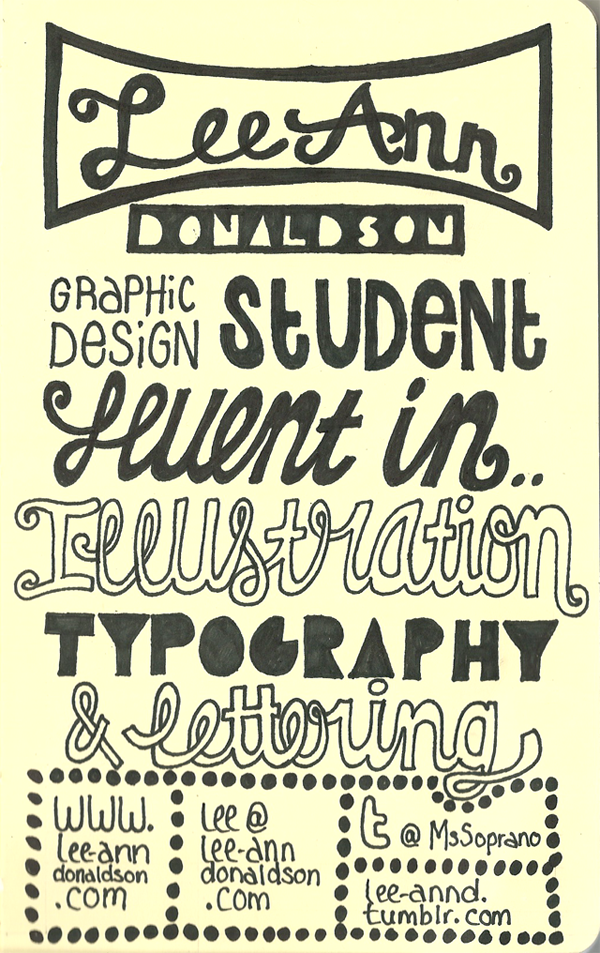 Lee Ann
DONALDSON
GRaPHiC
DesiGN
StUDeNt
fluent in..
Illustration
TYPOGRAPHY
& lettering
www.
lee-ann
donaldson
.com
Lee @
Lee-ann
donaldson
.com
t @ MsSoprano
lee-annd.
tumblr.com